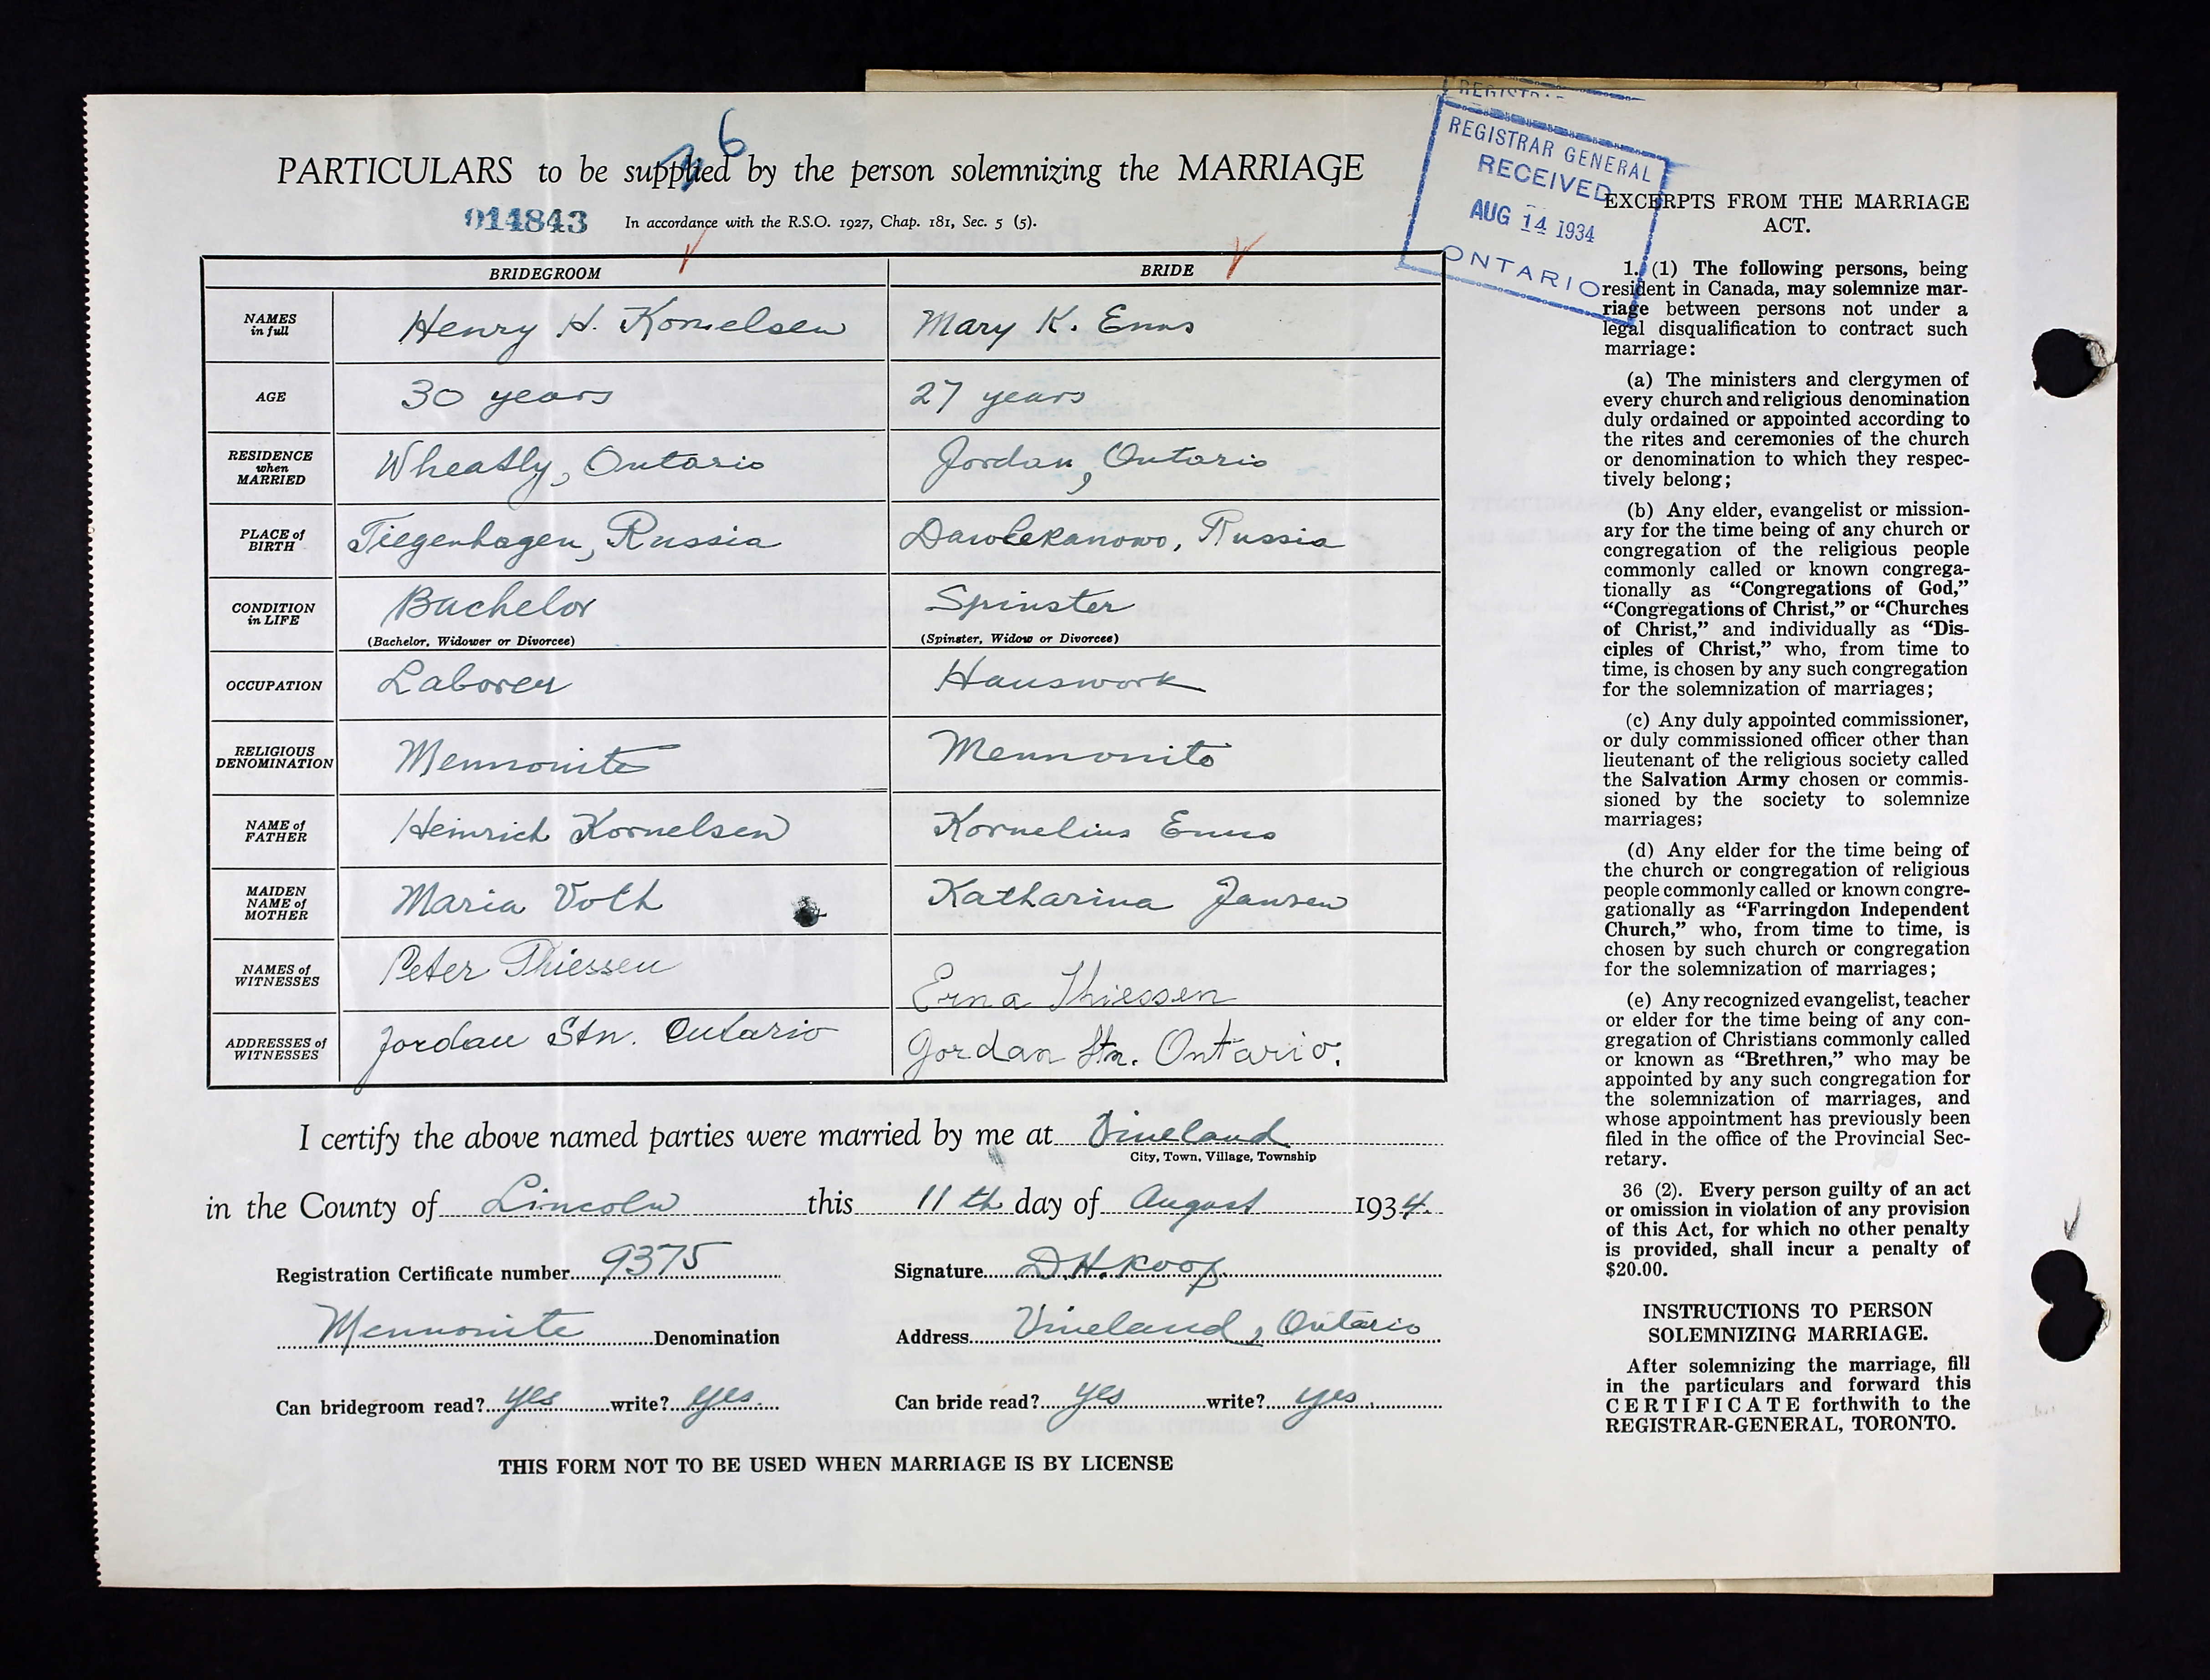 26
PARTICULARS to be supplied by the person solemnizing the MARRIAGE
014843 In accordance with the R.S.O. 1927, Chap. 181, Sec. 5 (5).
REGISTRAR GENERAL
RECEIVED
AUG 14 1934
ONTARIO
BRIDEGROOM BRIDE
NAMES in full Henry H. Kornelsen Mary K. Enns
AGE 30 years 27 years
RESIDENCE when MARRIED Wheatly, Ontario Jordan, Ontario
PLACE of BIRTH Tiegenhagen, Russia Dawlekanowo, Russia
CONDITION in LIFE Bachelor Spinster
(Bachelor, Widower or Divorcee) (Spinster, Widow or Divorcee)
OCCUPATION Laborer Hauswork
RELIGIOUS DENOMINATION Mennonite Mennonite
NAME of FATHER Heinrich Kornelsen Kornelius Enns
MAIDEN NAME of MOTHER Maria Voth Katharina Janzen
NAMES of WITNESSES Peter Thiessen Erna Thiessen
ADDRESSES of WITNESSES Jordan Stn. Ontario Jordan Stn. Ontario.
I certify the above named parties were married by me at Vineland
City, Town, Village, Township
in the County of Lincoln this 11th day of August 1934.
Registration Certificate number 9375 Signature D.H. Koop
Mennonite Denomination Address Vineland, Ontario
Can bridegroom read? yes write? yes. Can bride read? yes write? yes.
THIS FORM NOT TO BE USED WHEN MARRIAGE IS BY LICENSE
EXCERPTS FROM THE MARRIAGE
ACT.
1. (1) The following persons, being
resident in Canada, may solemnize mar-
riage between persons not under a
legal disqualification to contract such
marriage:
(a) The ministers and clergymen of
every church and religious denomination
duly ordained or appointed according to
the rites and ceremonies of the church
or denomination to which they respec-
tively belong;
(b) Any elder, evangelist or mission-
ary for the time being of any church or
congregation of the religious people
commonly called or known congrega-
tionally as “Congregations of God,”
“Congregations of Christ,” or “Churches
of Christ,” and individually as “Dis-
ciples of Christ,” who, from time to
time, is chosen by any such congregation
for the solemnization of marriages;
(c) Any duly appointed commissioner,
or duly commissioned officer other than
lieutenant of the religious society called
the Salvation Army chosen or commis-
sioned by the society to solemnize
marriages;
(d) Any elder for the time being of
the church or congregation of religious
people commonly called or known congre-
gationally as “Farringdon Independent
Church,” who, from time to time, is
chosen by such church or congregation
for the solemnization of marriages;
(e) Any recognized evangelist, teacher
or elder for the time being of any con-
gregation of Christians commonly called
or known as “Brethren,” who may be
appointed by any such congregation for
the solemnization of marriages, and
whose appointment has previously been
filed in the office of the Provincial Sec-
retary.
36 (2). Every person guilty of an act
or omission in violation of any provision
of this Act, for which no other penalty
is provided, shall incur a penalty of
$20.00.
INSTRUCTIONS TO PERSON
SOLEMNIZING MARRIAGE.
After solemnizing the marriage, fill
in the particulars and forward this
CERTIFICATE forthwith to the
REGISTRAR-GENERAL, TORONTO.